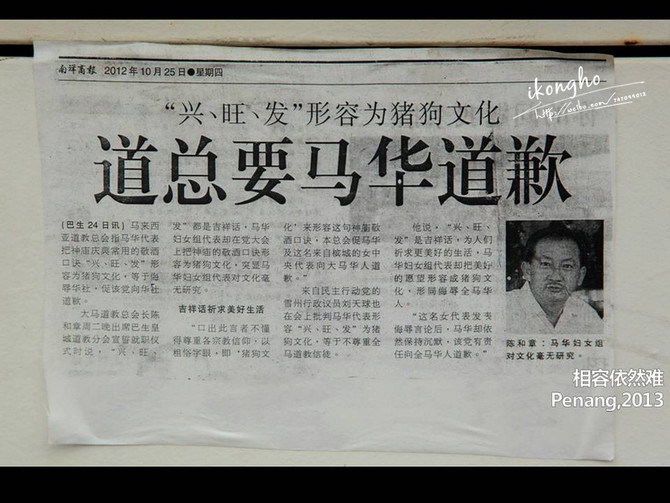 南洋商报 2012年10月25日●星期四
ikongho
http://weibo.com/
“兴、旺、发”形容为猪狗文化
道总要马华道歉
(巴生24日讯)马来西
亚道教总会指马华代表
把神庙庆典常用的敬酒
口诀“兴、旺、发”形
容为猪狗文化，等于侮
辱华社，促该党向华社
道歉。
大马道教总会长陈
和章周二晚出席巴生皇
城道教分会宣誓就职仪
式时说，“兴、旺、
发”都是吉祥话，马华
妇女组代表却在党大会
上把神庙的敬酒口诀形
容为猪狗文化，突显马
华妇女组代表对文化毫
无研究。
吉祥话祈求美好生活
“口出此言者不懂
得尊重各宗教信仰，以
粗俗字眼，即‘猪狗文
化’来形容这句神庙敬
酒口诀，本总会促马华
及这名来自槟城的女中
央代表向大马华人道
歉。”
来自民主行动党的
雪州行政议员刘天球也
在会上批判马华代表形
容“兴、旺、发”为猪
狗文化，等于不尊重全
马道教信徒。
他说，“兴、旺、
发”是吉祥话，为人们
祈求更美好的生活，马
华妇女组代表却把美好
的愿望形容成猪狗文
化，形同侮辱全马华
人。
“这名女代表发表
侮辱言论后，马华却依
然保持沉默，该党有责
任向全马华人道歉。”
陈和章：马华妇女组
对文化毫无研究。
相容依然难
Penang,2013